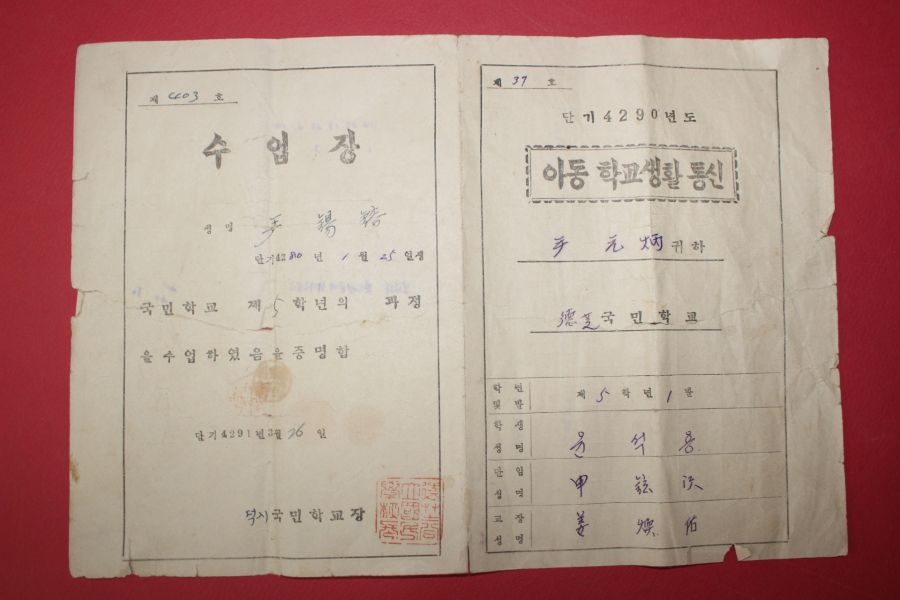 제 403 호
수업장
성명 尹錫鎔
단기4280년 1월 25일생
국민학교 제5학년의 과정
을수업하였음을증명함
단기4291년3월26일
국민학교장
제 37 호
단기4290년도
아동 학교생활 통신
尹元炳 귀하
德芝국민학교
학년
및반
제5학년1반
학생
성명
윤석용
담임
성명
교장
성명
姜